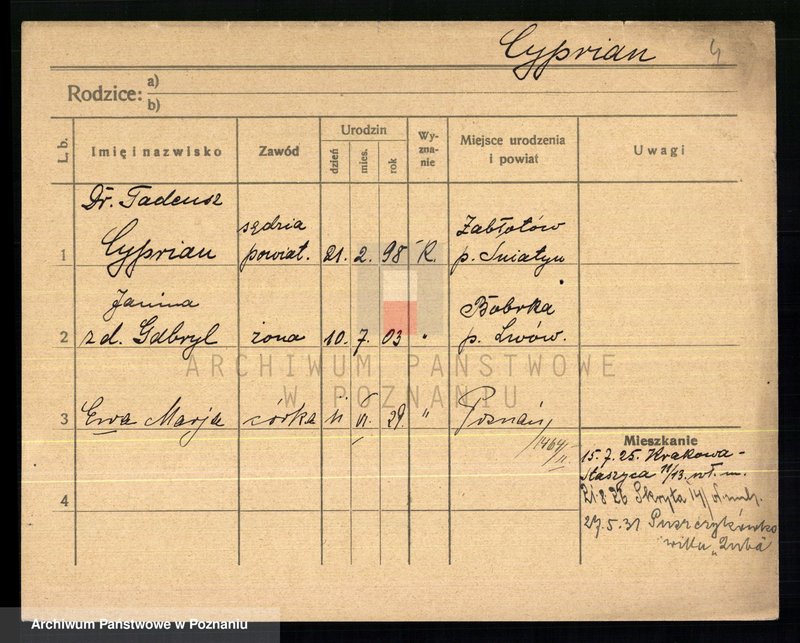 Cyprian 4
Rodzice: a)
b)
L. b. Imię i nazwisko Zawód Urodzin dzień mies. rok Wyznanie Miejsce urodzenia i powiat Uwagi
Dr. Tadeusz
1 Cyprian sędzia powiat. 21. 2. 98 R. Zabłotów p. Śniatyn
Janina
2 z d. Gdbryl żona 10. 7. 03 " Bobrka p. Lwów.
3 Ewa Marja córka 11 VI. 29. " Poznań,
1464/II
Mieszkanie
15.7.25. Krakowa-
Staszyca 11/13. wł. m.
21.8 26 Skryta 14/
4
27.5.31 Puszczykówko
willa „
ARCHIWUM PAŃSTWOWE
W POZNANIU
Archiwum Państwowe w Poznaniu